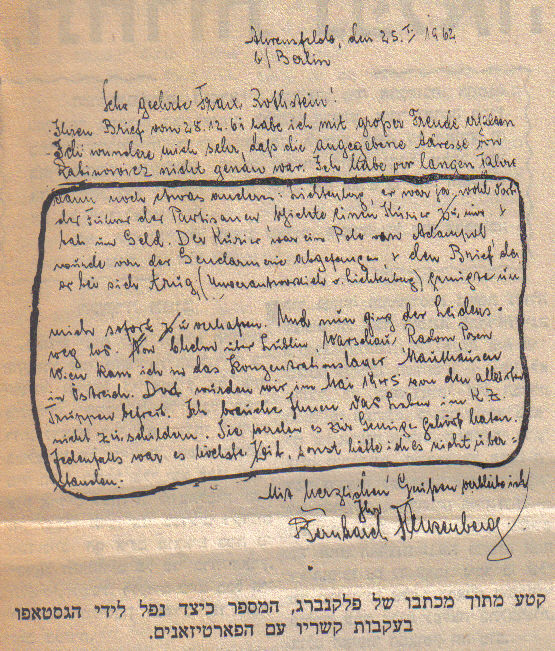 Ahrensfelde, den 25.I. 1962
b/ Berlin
Sehr geehrte Frau Rothstein!
Ihren Brief vom 28.12.61 habe ich mit großer Freude erhalten
Ich wundere mich sehr, daß die angegebene Adresse von
Rabinowicz nicht genau war. Ich habe vor langen Jahre
dann noch etwas anderes. Lichtenberg er war ja wohl doch
der Führer der Partisanen schickte einen Kurier zu mir +
bat um Geld. Der Kurier war ein Pole von Adampol
wurde von der Gendarmerie abgefangen + den Brief den
er bei sich trug (Unverantwortlich v. Lichtenberg) genügte um
mich sofort zu verhaften. Und nun ging der Leidens-
weg los. Von Chelm über Lublin Warschau Radom Posen
Wien kam ich in das Konzentrationslager Mauthausen
in Östreich. Dort wurden wir im Mai 1945 von den alliierten
Truppen befreit. Ich brauche Ihnen das Leben im K.Z.
nicht zu schildern. Sie werden es zur Genüge gehört haben.
Jedenfalls war es höchste Zeit, sonst hätte ich es nicht über-
standen.
Mit herzlichen Grüßen verbleibe ich
Ihr
Bernhard Falkenberg.
קטע מתוך מכתבו של פלקנברג, המספר כיצד נפל לידי הגסטאפו
בעקבות קשריו עם הפארטיזאנים.